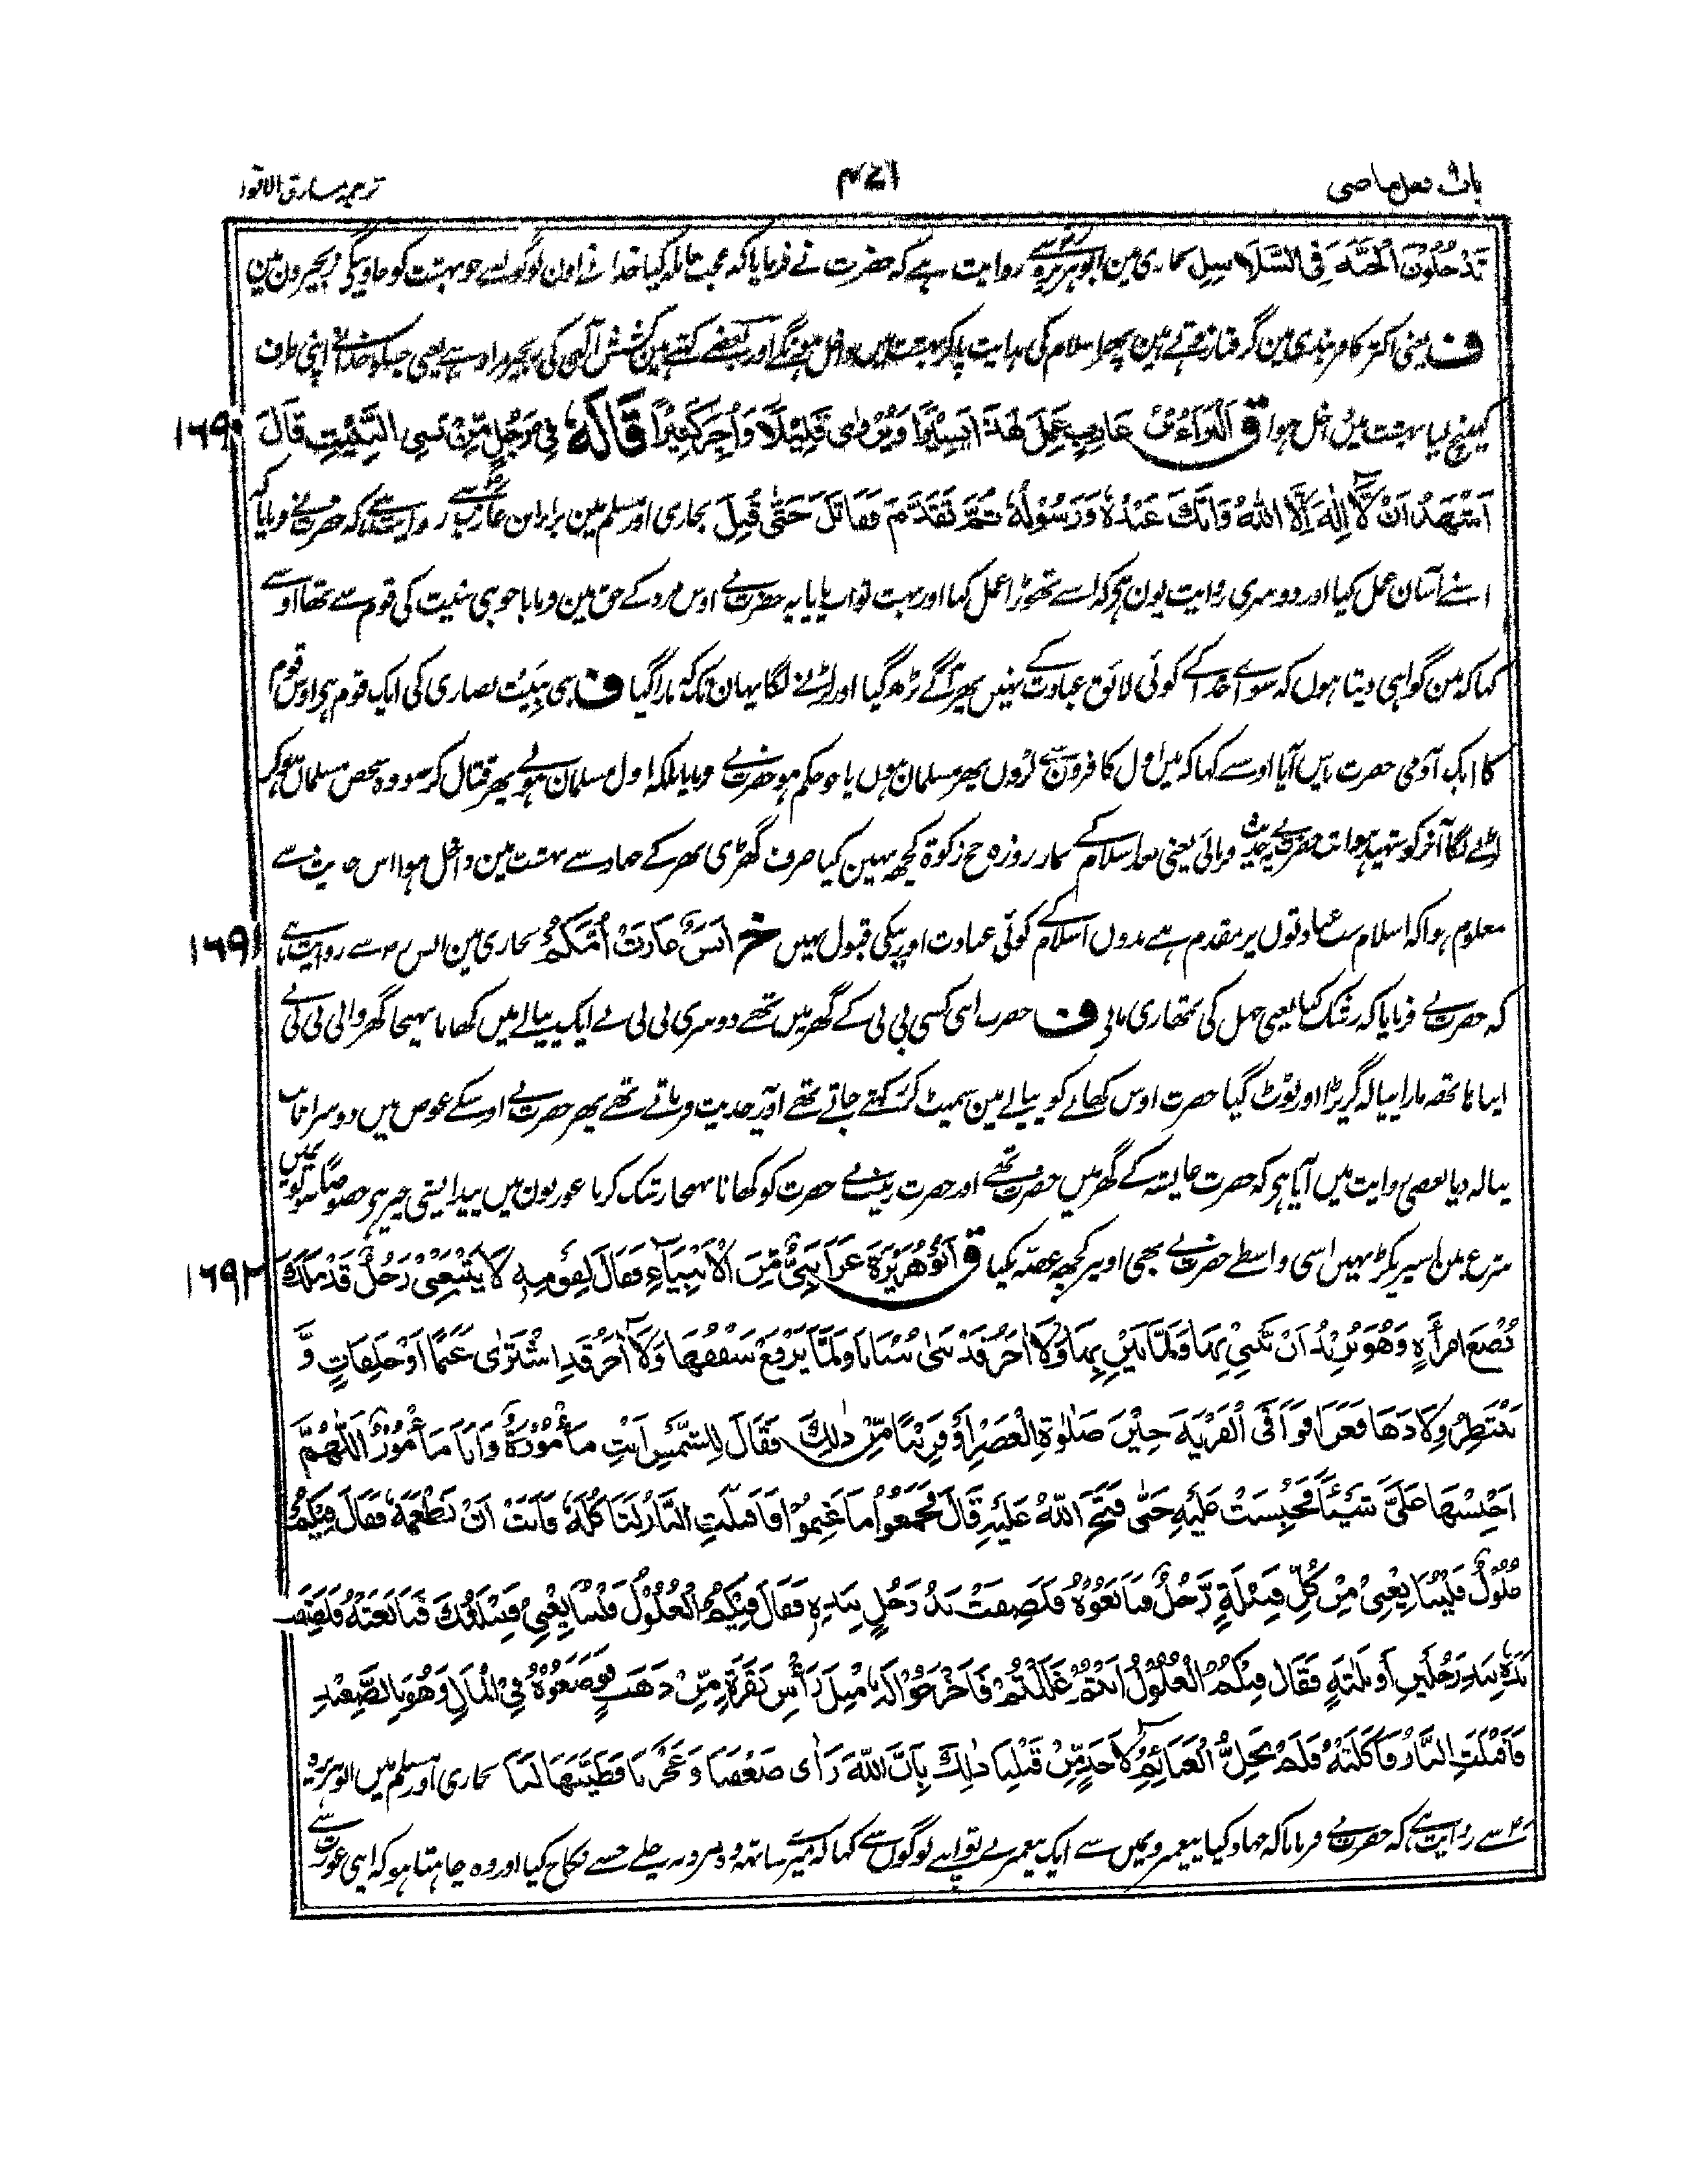 باب فعل ماضی ۴۷۱ ترجمہ مشارق الانوار
يَدْخُلُوْنَ الْجَنَّةَ فِی السَّلَاسِلِ بخاری مین ابو ہریرہ سے روایت ہے کہ حضرت نے فرمایا کہ عجب مانکہ کیا خدا نے اون لوگوں سے جو بہشت کو جاوینگے زنجیرون مین
ف یعنی اکثر کافر بندی مین گرفتار ہوتے ہین پھر اسلام کی ہدایت پاکر بہشت میں داخل ہونگے اور بعضے کہتے ہین کشش الٰہی کی زنجیر مراد ہے یعنی جسکو خدا نے اپنی طرف
کھینچ لیا بہشت میں داخل ہوا ق اَلْبَرَاءُ بْنُ عَازِبٍ عَمِلَ هٰذَا يَسِيْرًا وَيُرْوٰى قَلِيْلًا وَاُجِرَ كَثِيْرًا قَالَهٗ فِیْ رَجُلٍ مِّنْ بَنِی النَّبِيْتِ قَالَ ۱۶۹۰
اَشْهَدُ اَنْ لَّا اِلٰهَ اِلَّا اللّٰهُ وَاَنَّكَ عَبْدُهٗ وَرَسُوْلُهٗ ثُمَّ تَقَدَّمَ فَقَاتَلَ حَتّٰى قُتِلَ بخاری اور مسلم مین براء ابن عازب سے روایت ہے کہ حضرت نے فرمایا کہ
اسنے آسان عمل کیا اور دوسری روایت یون ہے کہ اسنے تھوڑا عمل کیا اور بہت ثواب پایا یہ حضرت نے اوس مرد کے حق مین فرمایا جو بنی نبیت کی قوم سے تھا اوسنے
کہا کہ مین گواہی دیتا ہوں کہ سواے خدا کے کوئی لائق عبادت کے نہیں پھر آگے بڑھ گیا اور لڑنے لگا یہان تک کہ مارا گیا ف بنی نبیت نصاری کی ایک قوم ہے اوس قوم
کا ایک آدمی حضرت پاس آیا اوسنے کہا کہ میں اول کافرون سے لڑوں پھر مسلمان ہوں یا جو حکم ہو حضرت نے فرمایا بلکہ اول مسلمان ہولے پھر قتال کر سو وہ شخص مسلمان ہوکر
لڑنے لگا آخر کو شہید ہوا تب حضرت نے یہ حدیث فرمائی یعنی بعد اسلام کے نماز روزہ حج زکوۃ کچھ نہین کیا صرف گھڑی بھر کے جہاد سے بہشت مین داخل ہوا اس حدیث سے
معلوم ہوا کہ اسلام سب عبادتوں پر مقدم ہے بدوں اسلام کے کوئی عبادت اور نیکی قبول نہیں خ اَنَسٌ غَارَتْ اُمُّكُمْ بخاری مین انس سے روایت ہے ۱۶۹۱
کہ حضرت نے فرمایا کہ رشک کیا یعنی جل گی تمھاری مانے ف حضرت اپنی کسی بی بی کے گھر میں تھے دوسری بی بی نے ایک پیالے میں کھانا بھیجا گھر والی بی بی نے
ایسا ہاتھ مارا پیالہ گر پڑا اور ٹوٹ گیا حضرت اوس کھانے کو پیالے مین سمیٹ کر رکھتے جاتے تھے اور یہ حدیث فرماتے تھے پھر حضرت نے اوسکے عوض میں دوسرا ثابت
پیالہ دیا بعضی روایت میں آیا ہے کہ حضرت عایشہ کے گھر میں حضرت تھے اور حضرت زینب نے حضرت کو کھانا بھیجا رشک کرنا عورتون میں پیدایشی چیز ہے خصوصا سوکنوں میں
شرع مین اسپر پکڑ نہیں اسی واسطے حضرت نے بھی اوپر کچھ غصہ نکیا ق اَبُوْ هُرَيْرَةَ غَزَا نَبِیٌّ مِّنَ الْاَنْبِيَآءِ فَقَالَ لِقَوْمِهٖ لَا يَتْبَعْنِیْ رَجُلٌ قَدْ مَلَكَ ۱۶۹۲
بُضْعَ امْرَأَةٍ وَهُوَ يُرِيْدُ اَنْ يَّبْنِیَ بِهَا وَلَمَّا يَبْنِ بِهَا وَلَا اٰخَرُ قَدْ بَنٰى بُنْيَانًا وَلَمَّا يَرْفَعْ سَقْفَهَا وَلَا اٰخَرُ قَدِ اشْتَرٰى غَنَمًا اَوْ خَلِفَاتٍ وَّ
يَنْتَظِرُ وِلَادَهَا فَغَزَا فَوَافَى الْقَرْيَةَ حِيْنَ صَلٰوةِ الْعَصْرِ اَوْ قَرِيْبًا مِّنْ ذٰلِكَ فَقَالَ لِلشَّمْسِ اَنْتِ مَأْمُوْرَةٌ وَاَنَا مَأْمُوْرٌ اَللّٰهُمَّ
احْبِسْهَا عَلَیَّ شَيْئًا فَحُبِسَتْ عَلَيْهِ حَتّٰى فَتَحَ اللّٰهُ عَلَيْهِ قَالَ فَجَمَعُوْا مَا غَنِمُوْا فَاَقْبَلَتِ النَّارُ لِتَأْكُلَهٗ فَاَبَتْ اَنْ تَطْعَمَهٗ فَقَالَ فِيْكُمْ
غُلُوْلٌ فَلْيُبَايِعْنِیْ مِنْ كُلِّ قَبِيْلَةٍ رَّجُلٌ فَبَايَعُوْهُ فَلَصِقَتْ يَدُ رَجُلٍ بِيَدِهٖ فَقَالَ فِيْكُمُ الْغُلُوْلُ فَلْتُبَايِعْنِیْ قَبِيْلَتُكَ فَبَايَعَتْهُ فَلَصِقَتْ
يَدُهٗ بِيَدِ رَجُلَيْنِ اَوْ ثَلٰثَةٍ فَقَالَ فِيْكُمُ الْغُلُوْلُ اَنْتُمْ غَلَلْتُمْ فَاَخْرَجُوْا لَهٗ مِثْلَ رَأْسِ بَقَرَةٍ مِّنْ ذَهَبٍ فَوَضَعُوْهُ فِی الْمَالِ وَهُوَ بِالصَّعِيْدِ
فَاَقْبَلَتِ النَّارُ فَاَكَلَتْهُ فَلَمْ تَحِلَّ الْغَنَائِمُ لِاَحَدٍ مِّنْ قَبْلِنَا ذٰلِكَ بِاَنَّ اللّٰهَ رَاٰى ضَعْفَنَا وَعَجْزَنَا فَطَيَّبَهَا لَنَا بخاری اور مسلم میں ابو ہریرہ
سے روایت ہے کہ حضرت نے فرمایا کہ جہاد کیا پیغمبروں میں سے ایک پیغمبر نے تو اپنے لوگوں سے کہا کہ میرے ساتھ وہ مرد نہ چلے جسنے نکاح کیا اور وہ چاہتا ہو کہ اپنی عورت سے